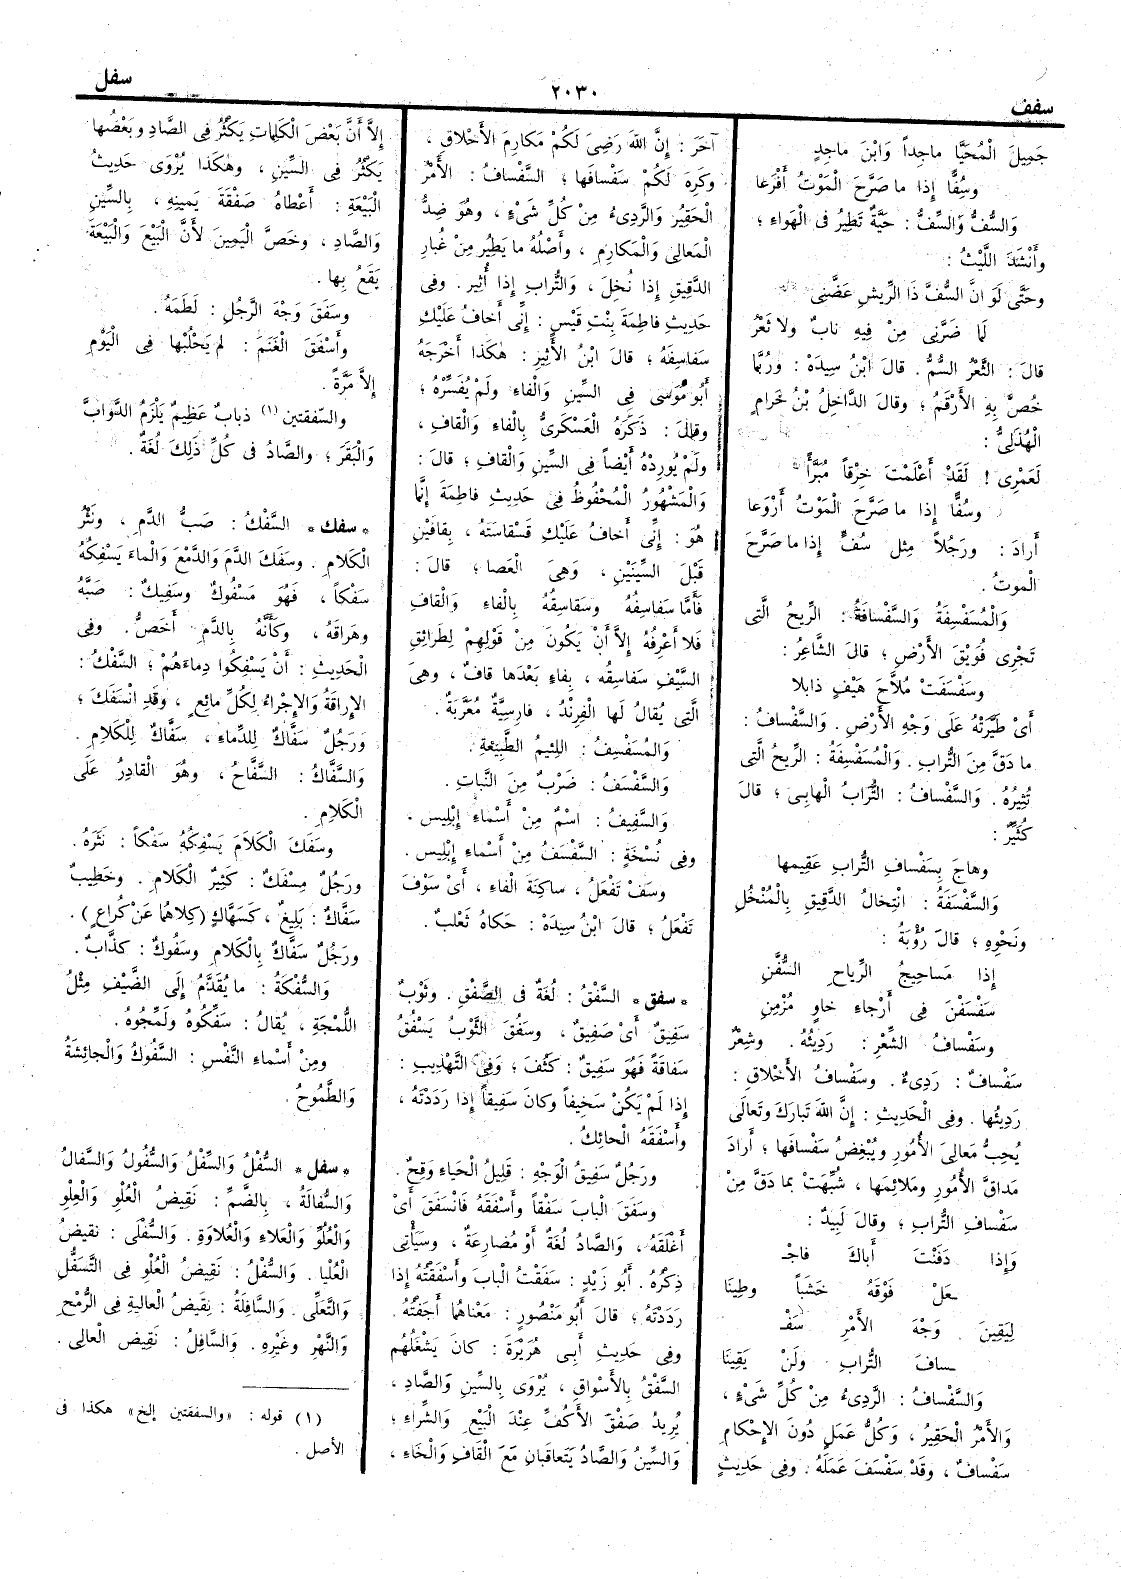 سفف
٢٠٣٠
سفل
جَمِيلَ الْمُحَيَّا ماجِداً وَابْنَ ماجِدٍ
وسُفًّا إذا ما صَرَّحَ الْمَوْتُ أَقْرَعا
وَالسُّفُّ وَالسِّفُّ : حَيَّةٌ تَطِيرُ فى الْهَواءِ ؛
وأَنْشَدَ اللَّيْثُ :
وحَتَّى لَو انَّ السُّفَّ ذَا الرِّيشِ عَضَّنِى
لَمَا ضَرَّنِى مِنْ فِيهِ نابٌ ولا ثَعْرُ
قالَ : الثَّعْرُ السُّمُّ . قالَ ابْنُ سِيدَهْ : ورُبَّما
خُصَّ بِهِ الأَرْقَمُ ؛ وقالَ الدَّاخِلُ بْنُ حَرامٍ
الْهُذَلِىُّ :
لَعَمْرِى ! لَقَدْ أَعْلَمْتَ خِرْقاً مُبَرَّأً
وسُفًّا إذا ما صَرَّحَ الْمَوْتُ أَرْوَعا
أَرادَ : ورَجُلاً مِثل سُفٍّ إذا ما صَرَّحَ
الْموتُ .
وَالْمُسَفْسِفَةُ وَالسَّفْسافَةُ : الرِّيحُ الَّتى
تَجْرِى فُوَيْقَ الأَرْضِ ؛ قالَ الشَّاعِرُ :
وسَفْسَفَتْ مُلاَّحَ هَيْفٍ ذابِلا
أَىْ طَيَّرَتْهُ عَلَى وَجْهِ الأَرْضِ . وَالسَّفْسافُ :
ما دَقَّ مِنَ التُّرابِ . وَالْمُسَفْسِفَةُ : الرِّيحُ الَّتى
تُثِيرُهُ . وَالسَّفْسافُ : التُّرَابُ الْهابِى ؛ قالَ
كُثَيِّرٌ :
وهاجَ بِسَفْسافِ التُّرابِ عَقِيمها
وَالسَّفْسَفَةُ : انْتِخالُ الدَّقِيقِ بِالْمُنْخُلِ
ونَحْوِهِ ؛ قالَ رُؤْبَةُ :
إذا مَساحِيجُ الرِّياحِ السُّفَّنِ
سَفْسَفْنَ فِى أَرْجاءِ خاوٍ مُزْمِنِ
وسَفْسافُ الشِّعْرِ : رَدِيئُهُ . وشِعْرٌ
سَفْسافٌ : رَدِىءٌ . وسَفْسافُ الأَخْلاقِ :
رَدِيئُها . وفِى الْحَدِيثِ : إِنَّ اللهَ تَبارَكَ وتَعالَى
يُحِبُّ مَعالِىَ الأُمُورِ ويُبْغِضُ سَفْسافَها ؛ أَرادَ
مَداقَّ الأُمُورِ ومَلائِمَها ، شُبِّهَتْ بما دَقَّ مِنْ
سَفْسافِ التُّرابِ ؛ وقالَ لَبِيدٌ :
وَإذا دَفَنْتَ أَباكَ فاجْـ
ـعَلْ فَوْقَهُ خَشَباً وطِينَا
لِيَقِينَ وَجْهَ الأَمْرِ سَفْـ
ـسافَ التُّرابِ ولَنْ يَقِينَا
وَالسَّفْسافُ : الرَّدِىءُ مِنْ كُلِّ شَىْءٍ ،
وَالأَمْرُ الْحَقِيرُ ، وَكُلُّ عَمَلٍ دُونَ الإِحْكامِ
سَفْسافٌ ، وقَدْ سَفْسَفَ عَمَلَهُ . وفِى حَدِيثٍ
آخَرَ : إِنَّ اللهَ رَضِىَ لَكُمْ مَكارِمَ الأَخْلاقِ ،
وكَرِهَ لَكُمْ سَفْسافَها ؛ السَّفْسافُ : الأَمْرُ
الْحَقِيرُ وَالرَّدِىءُ مِنْ كُلِّ شَىْءٍ ، وهُوَ ضِدُّ
الْمَعالِى وَالْمَكارِمِ ، وأَصْلُهُ ما يَطِيرُ مِنْ غُبارِ
الدَّقِيقِ إذا نُخِلَ ، وَالتُّرابِ إذا أُثِيرَ . وفِى
حَدِيثِ فاطِمَةَ بِنْتِ قَيْسٍ : إِنِّى أَخافُ عَلَيْكِ
سَفاسِفَهُ ؛ قالَ ابْنُ الأَثِيرِ : هٰكَذا أَخْرَجَهُ
أَبُو مُوسَى فِى السِّينِ وَالْفاءِ ولَمْ يُفَسِّرْهُ ؛
وقالَ : ذَكَرَهُ الْعَسْكَرِىُّ بِالْفاءِ وَالْقافِ ،
ولَمْ يُورِدْهُ أَيْضاً فِى السِّينِ وَالْقافِ ؛ قالَ :
وَالْمَشْهُورُ الْمَحْفُوظُ فِى حَدِيثِ فاطِمَةَ إِنَّما
هُوَ : إِنِّى أَخافُ عَلَيْكِ قَسْقاسَتَهُ ، بِقافَيْنِ
قَبْلَ السِّينَيْنِ ، وَهِىَ الْعَصا ؛ قالَ :
فَأَمَّا سَفاسِفُهُ وسَقاسِقُهُ بِالْفاءِ وَالْقافِ
فَلا أَعْرِفُهُ إلاَّ أَنْ يَكُونَ مِنْ قَوْلِهِمْ لِطَرائِقِ
السَّيْفِ سَفاسِقُه ، بِفاءٍ بَعْدَها قافٌ ، وهِىَ
الَّتِى يُقالُ لَها الْفِرِنْدُ ، فارِسِيَّةٌ مُعَرَّبَةٌ .
وَالْمُسَفْسِفُ : اللَّئِيمُ الطَّبِيعَةِ .
وَالسَّفْسَفُ : ضَرْبٌ مِنَ النَّباتِ .
وَالسَّفِيفُ : اسْمٌ مِنْ أَسْماءِ إبْلِيس ،
وفِى نُسْخَةٍ : السَّفْسَفُ مِنْ أَسْماءِ إبْلِيس .
وسَفْ تَفْعَلُ ، ساكِنَةَ الْفاءِ ، أَىْ سَوْفَ
تَفْعَلُ ؛ قالَ ابْنُ سِيدَهْ : حَكاهُ ثَعْلَبٌ .
* سفق * السَّفْقُ : لُغَةٌ فى الصَّفْقِ . وثَوْبٌ
سَفِيقٌ أَىْ صَفِيقٌ ، وسَفُقَ الثَّوْبُ يَسْفُقُ
سَفاقَةً فَهُوَ سَفِيقٌ : كَثُفَ ؛ وفِى التَّهْذِيبِ :
إذا لَمْ يَكُنْ سَخِيفاً وكانَ سَفِيقاً إذا رَدَدْتَهُ ،
وأَسْفَقَهُ الْحائِكُ .
ورَجُلٌ سَفِيقُ الْوَجْهِ : قَلِيلُ الْحَياءِ وَقِحٌ .
وسَفَقَ الْبابَ سَفْقاً وأَسْفَقَهُ فَانْسَفَقَ أَىْ
أَغْلَقَهُ ، وَالصَّادُ لُغَةٌ أَوْ مُضارِعَةٌ ، وسَيَأْتِى
ذِكْرُهُ . أَبُو زَيْدٍ : سَفَقْتُ الْبابَ وأَسْفَقْتُهُ إذا
رَدَدْتَهُ ؛ قالَ أَبُو مَنْصُورٍ : مَعْناهُما أَجَفْتُهُ .
وفِى حَدِيثِ أَبِى هُرَيْرَةَ : كانَ يَشْغَلُهُم
السَّفْقُ بِالأَسْواقِ ، يُرْوَى بِالسِّينِ وَالصَّادِ ،
يُرِيدُ صَفْقَ الأَكُفِّ عِنْدَ الْبَيْعِ وَالشِّراءِ ؛
وَالسِّينُ وَالصَّادُ يَتَعاقَبانِ مَعَ الْقافِ وَالْخَاءِ ،
إلاَّ أَنَّ بَعْضَ الْكَلِماتِ يَكْثُرُ فِى الصَّادِ وبَعْضُها
يَكْثُرُ فِى السِّينِ ، وهٰكَذا يُرْوَى حَدِيثُ
الْبَيْعَةِ : أَعْطاهُ صَفْقَةَ يَمِينِهِ ، بِالسِّينِ
وَالصَّادِ ، وخَصَّ الْيَمِينَ لأَنَّ الْبَيْعَ وَالْبَيْعَةَ
يَقَعُ بِها .
وسَفَقَ وَجْهَ الرَّجُلِ : لَطَمَهُ .
وأَسْفَقَ الْغَنَمَ : لَمْ يَحْلُبْها فِى الْيَوْمِ
إِلاَّ مَرَّةً .
والسَّفقتين (١) ذبابٌ عَظِيمٌ يَلْزَمُ الدَّوَابَّ
وَالْبَقَرَ ؛ وَالصَّادُ فى كُلِّ ذَلِكَ لُغَةٌ .
* سفك * السَّفْكُ : صَبُّ الدَّمِ ، ونَثْرُ
الْكَلامِ . وسَفَكَ الدَّمَ وَالدَّمْعَ وَالْماءَ يَسْفِكُهُ
سَفْكاً ، فَهُوَ مَسْفُوكٌ وسَفِيكٌ : صَبَّهُ
وهَراقَهُ ، وكَأَنَّهُ بِالدَّمِ أَخَصُّ . وفِى
الْحَدِيثِ : أَنْ يَسْفِكُوا دِماءَهُمْ ؛ السَّفْكُ :
الإِراقَةُ وَالإِجْراءُ لِكُلِّ مائِعٍ ، وقَدِ انْسَفَكَ ؛
ورَجُلٌ سَفَّاكٌ لِلدِّماءِ ، سَفَّاكٌ لِلْكَلامِ .
وَالسَّفَّاكُ : السَّفَّاحُ ، وهُوَ الْقادِرُ عَلَى
الْكَلامِ .
وسَفَكَ الْكَلاَمَ يَسْفِكُهُ سَفْكاً : نَثَرَهُ .
ورَجُلٌ مِسْفَكٌ : كَثِيرُ الْكَلامِ . وخَطِيبٌ
سَفَّاكٌ : بَلِيغٌ ، كَسَهَّاكٍ (كِلاهُما عَنْ كُراعٍ ) .
ورَجُلٌ سَفَّاكٌ بِالْكَلامِ وسَفُوكٌ : كذَّابٌ .
وَالسُّفْكَةُ : ما يُقَدَّمُ إِلَى الضَّيْفِ مِثْلُ
اللُّمْجَةِ ، يُقالُ : سَفِّكُوهُ ولَمِّجُوهُ .
ومِنْ أَسْماءِ النَّفْسِ : السَّفُوكُ وَالْجائِشَةُ
وَالطَّمُوحُ .
* سفل * السُّفْلُ وَالسِّفْلُ وَالسُّفُولُ وَالسَّفالُ
وَالسُّفالَةُ ، بِالضَّمِّ : نَقِيضُ الْعُلْوِ وَالْعِلْوِ
وَالْعُلُوِّ وَالْعَلاءِ وَالْعُلاوَةِ . وَالسُّفْلَى : نَقِيضُ
الْعُلْيا . وَالسُّفْلُ : نَقِيضُ الْعُلْوِ فِى التَّسَفُّلِ
وَالتَّعَلِّى . وَالسَّافِلَةُ : نَقِيضُ الْعالِيةِ فِى الرُّمْحِ
وَالنَّهْرِ وغَيْرِهِ . وَالسَّافِلُ : نَقِيض الْعالِى .
(١) قوله : «والسفقتين إلخ» هكذا فى
الأصل .